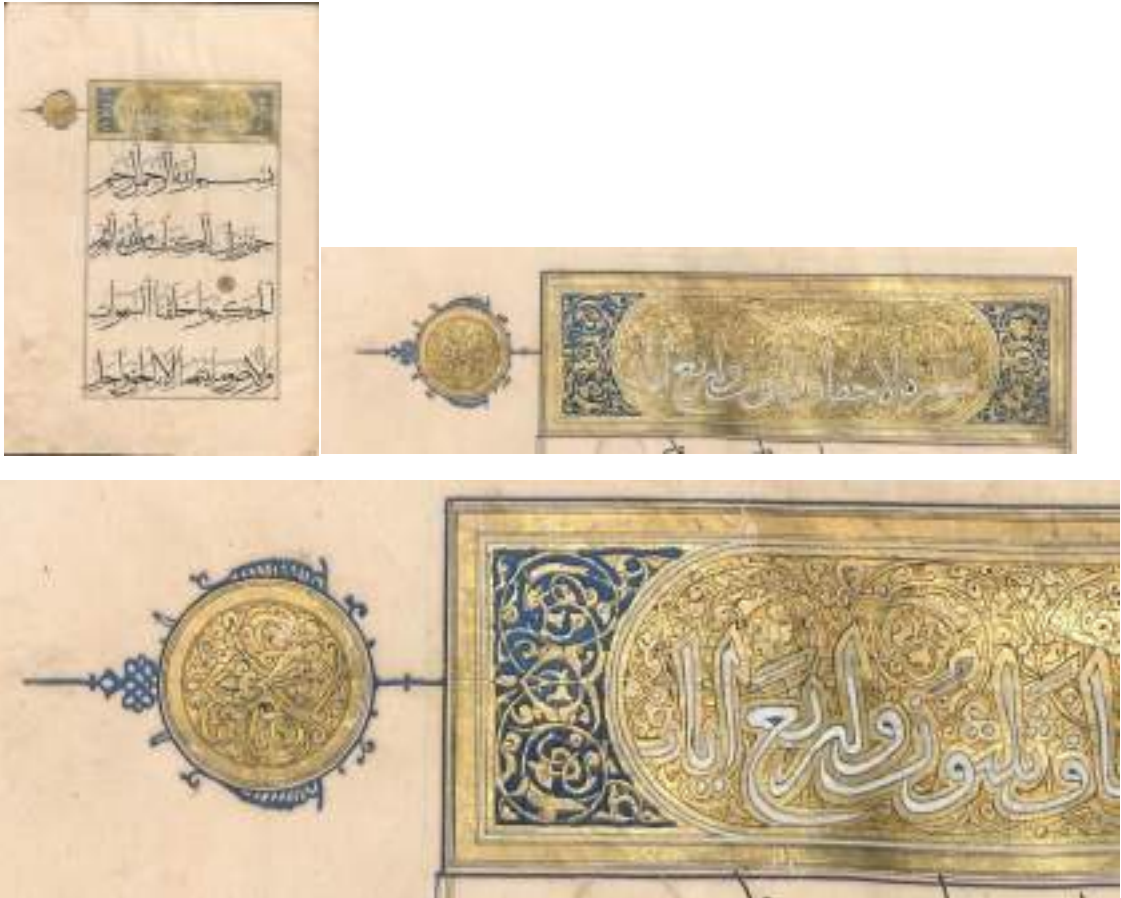 سورة الاحقاف ثلثون واربع ايات
بسم الله الرحمن الرحيم
حم تنزيل الكتاب من الله العزيز
الحكيم ما خلقنا السموات
والارض وما بينهما الا بالحق واجل
سورة الاحقاف ثلثون واربع ايات
اف ثلثون واربع ايات